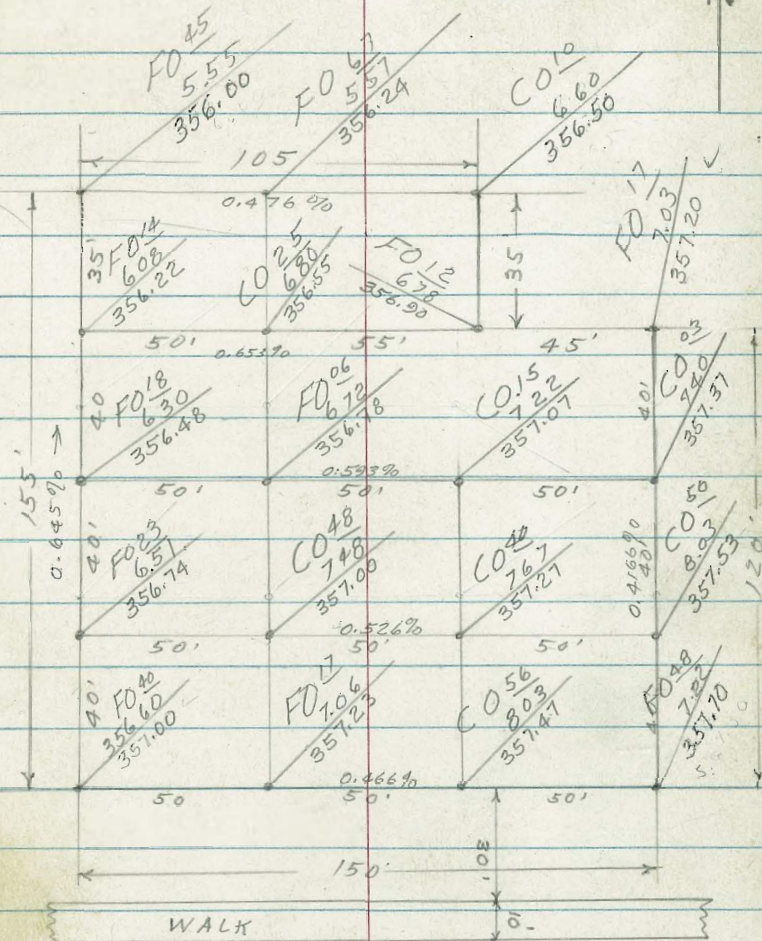 FO 45
5.55
356.00
FO 67
5.57
356.24
CO 10
6.60
356.50
105
0.476 %
FO 17
7.03
357.20
35'
FO 14
608
356.22
CO 25
680
356.55
FO 12
678
356.90
35'
50'
0.653%
55'
45'
40
FO 18
630
356.48
FO 06
672
356.78
CO 15
7.22
357.07
40'
CO 03
740
357.37
155'
0.645% →
0.593%
50'
50'
50'
40'
FO 23
6.57
356.74
CO 48
748
357.00
CO 40
767
357.27
0.4166%
40'
CO 50
8.03
357.53
120'
0.526%
50'
50'
50'
40'
FO 40
356.60
357.00
FO 17
7.06
357.23
CO 56
803
357.47
FO 48
7.22
357.70
0.466%
50
50'
50'
30'
150'
WALK
10'